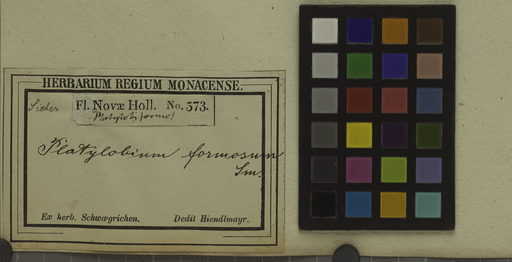 HERBARIUM REGIUM MONACENSE.
Sieber Fl. Novæ Holl. No. 573.
Platylob. formos!
Platylobium formosum
Sm.
Ex herb. Schwægrichen. Dedit Hiendlmayr.